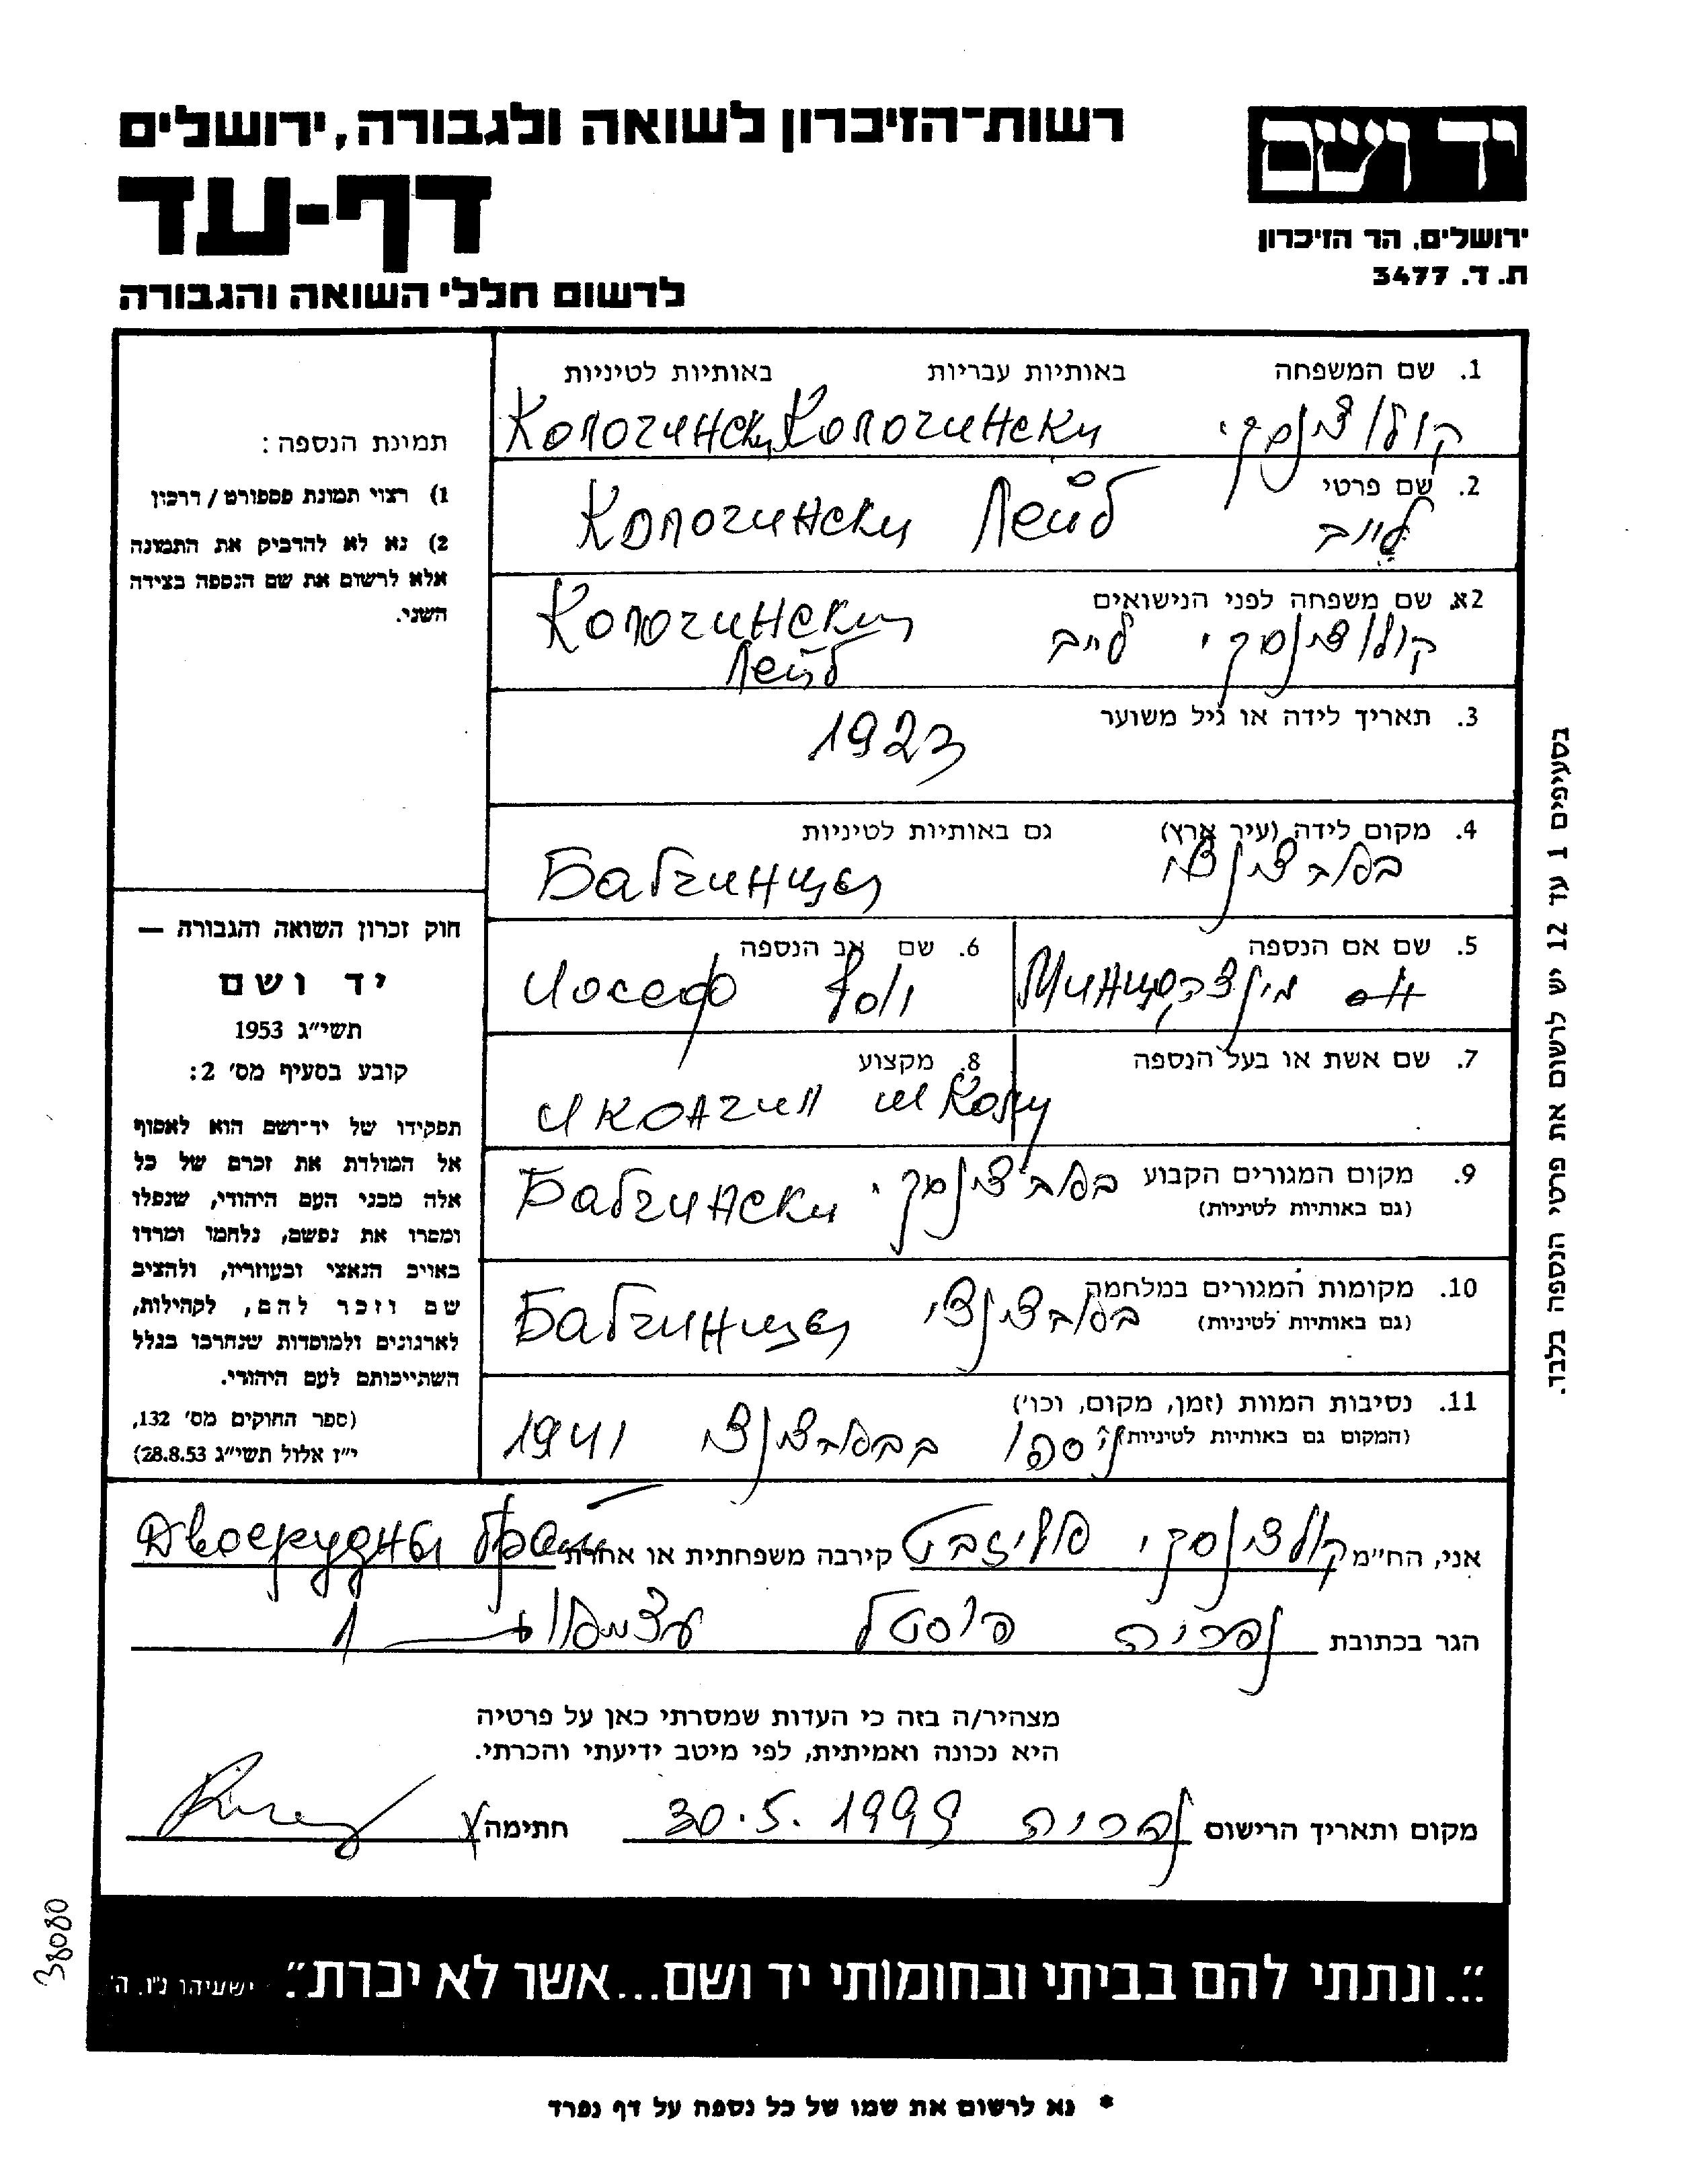 רשות־הזיכרון לשואה ולגבורה, ירושלים
דף-עד
לרשום חללי השואה והגבורה
יד ושם
ירושלים, הר הזיכרון
ת. ד. 3477
1. שם המשפחה באותיות עבריות באותיות לטיניות
קולוצ'ינסקי Колочински Колочински
2. שם פרטי
לייב Колочински Лейб
2א. שם משפחה לפני הנישואים
קולוצ'ינסקי לייב Колочински
Лейб
3. תאריך לידה או גיל משוער
1923
4. מקום לידה (עיר ארץ) גם באותיות לטיניות
Бабчинцы
5. שם אם הנספה
6. שם אב הנספה
Иосеф
7. שם אשת או בעל הנספה
8. מקצוע
школу
9. מקום המגורים הקבוע
(גם באותיות לטיניות)
Бабчински
10. מקומות המגורים במלחמה
(גם באותיות לטיניות)
Бабчинцы
11. נסיבות המוות (זמן, מקום, וכו')
(המקום גם באותיות לטיניות)
1941
תמונת הנספה:
1) רצוי תמונת פספורט / דרכון
2) נא לא להדביק את התמונה
אלא לרשום את שם הנספה בצידה
השני.
חוק זכרון השואה והגבורה —
יד ושם
תשי״ג 1953
קובע בסעיף מס' 2:
תפקידו של יד־ושם הוא לאסוף
אל המולדת את זכרם של כל
אלה מבני העם היהודי, שנפלו
ומסרו את נפשם, נלחמו ומרדו
באויב הנאצי ובעוזריו, ולהציב
שם וזכר להם, לקהילות,
לארגונים ולמוסדות שנחרבו בגלל
השתייכותם לעם היהודי.
(ספר החוקים מס' 132,
י״ז אלול תשי״ג 28.8.53)
בסעיפים 1 עד 12 יש לרשום את פרטי הנספה בלבד.
אני, הח״מ קולצ'ינסקי אליזבט קירבה משפחתית או אחרת
הגר בכתובת נהריה עצמאות 1
מצהיר/ה בזה כי העדות שמסרתי כאן על פרטיה
היא נכונה ואמיתית, לפי מיטב ידיעתי והכרתי.
מקום ותאריך הרישום נהריה 30.5.1999 חתימה
38080
"...ונתתי להם בביתי ובחומותי יד ושם...אשר לא יכרת". ישעיהו נ"ו, ה'
* נא לרשום את שמו של כל נספה על דף נפרד